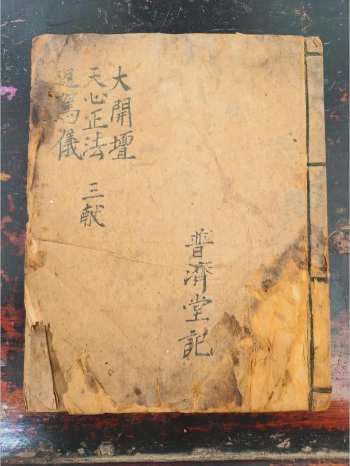 大開壇
天心正法 三献
送駕儀
普濟堂記